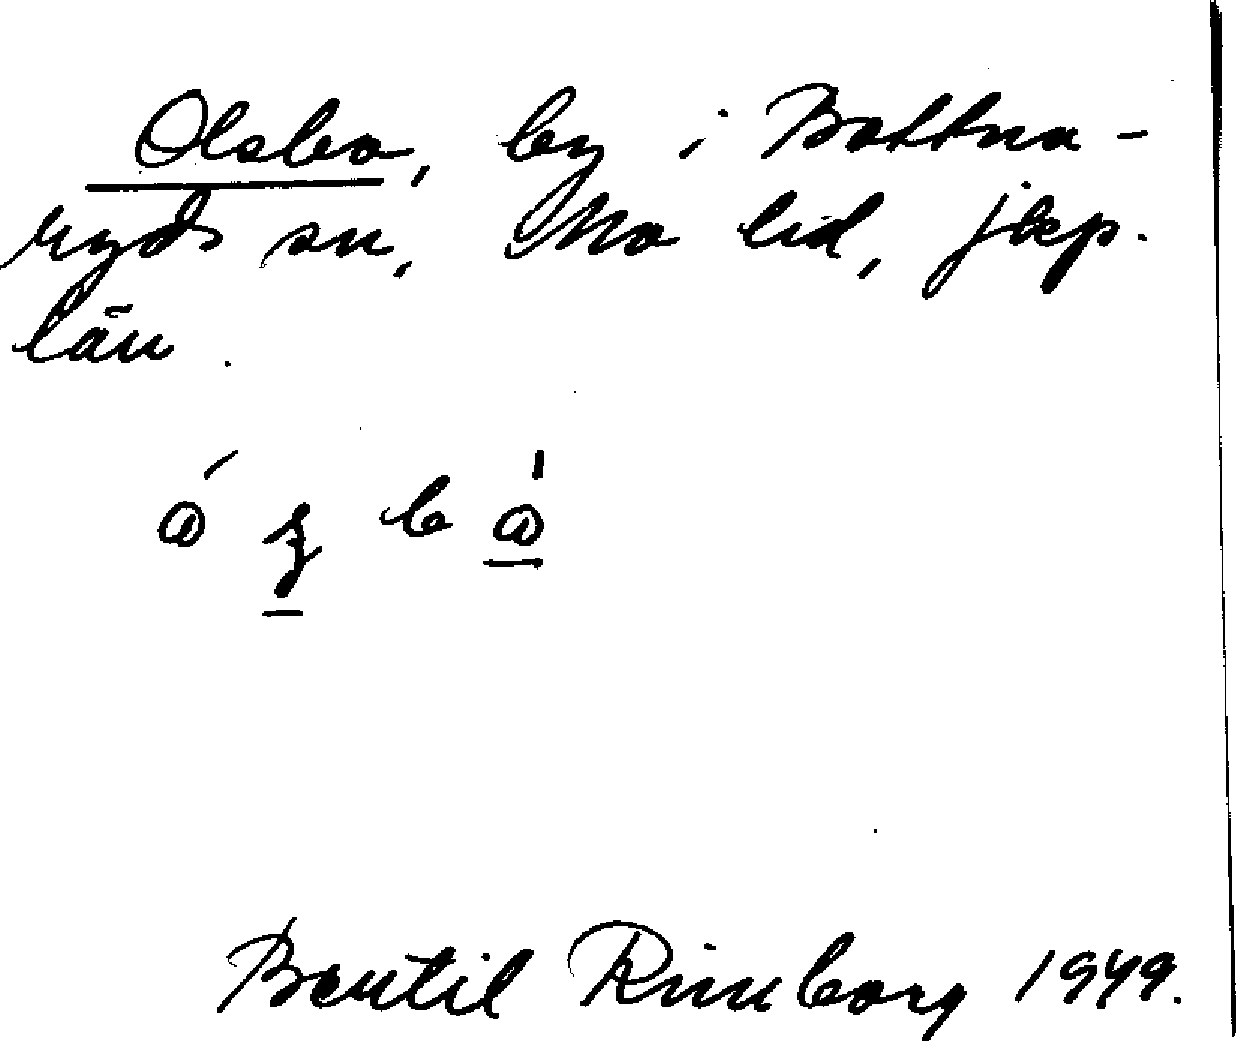 Olsbo, by i Bottna-
ryds sn, Mo hd, Jkp.
län.
Bertil Rimborg 1949.